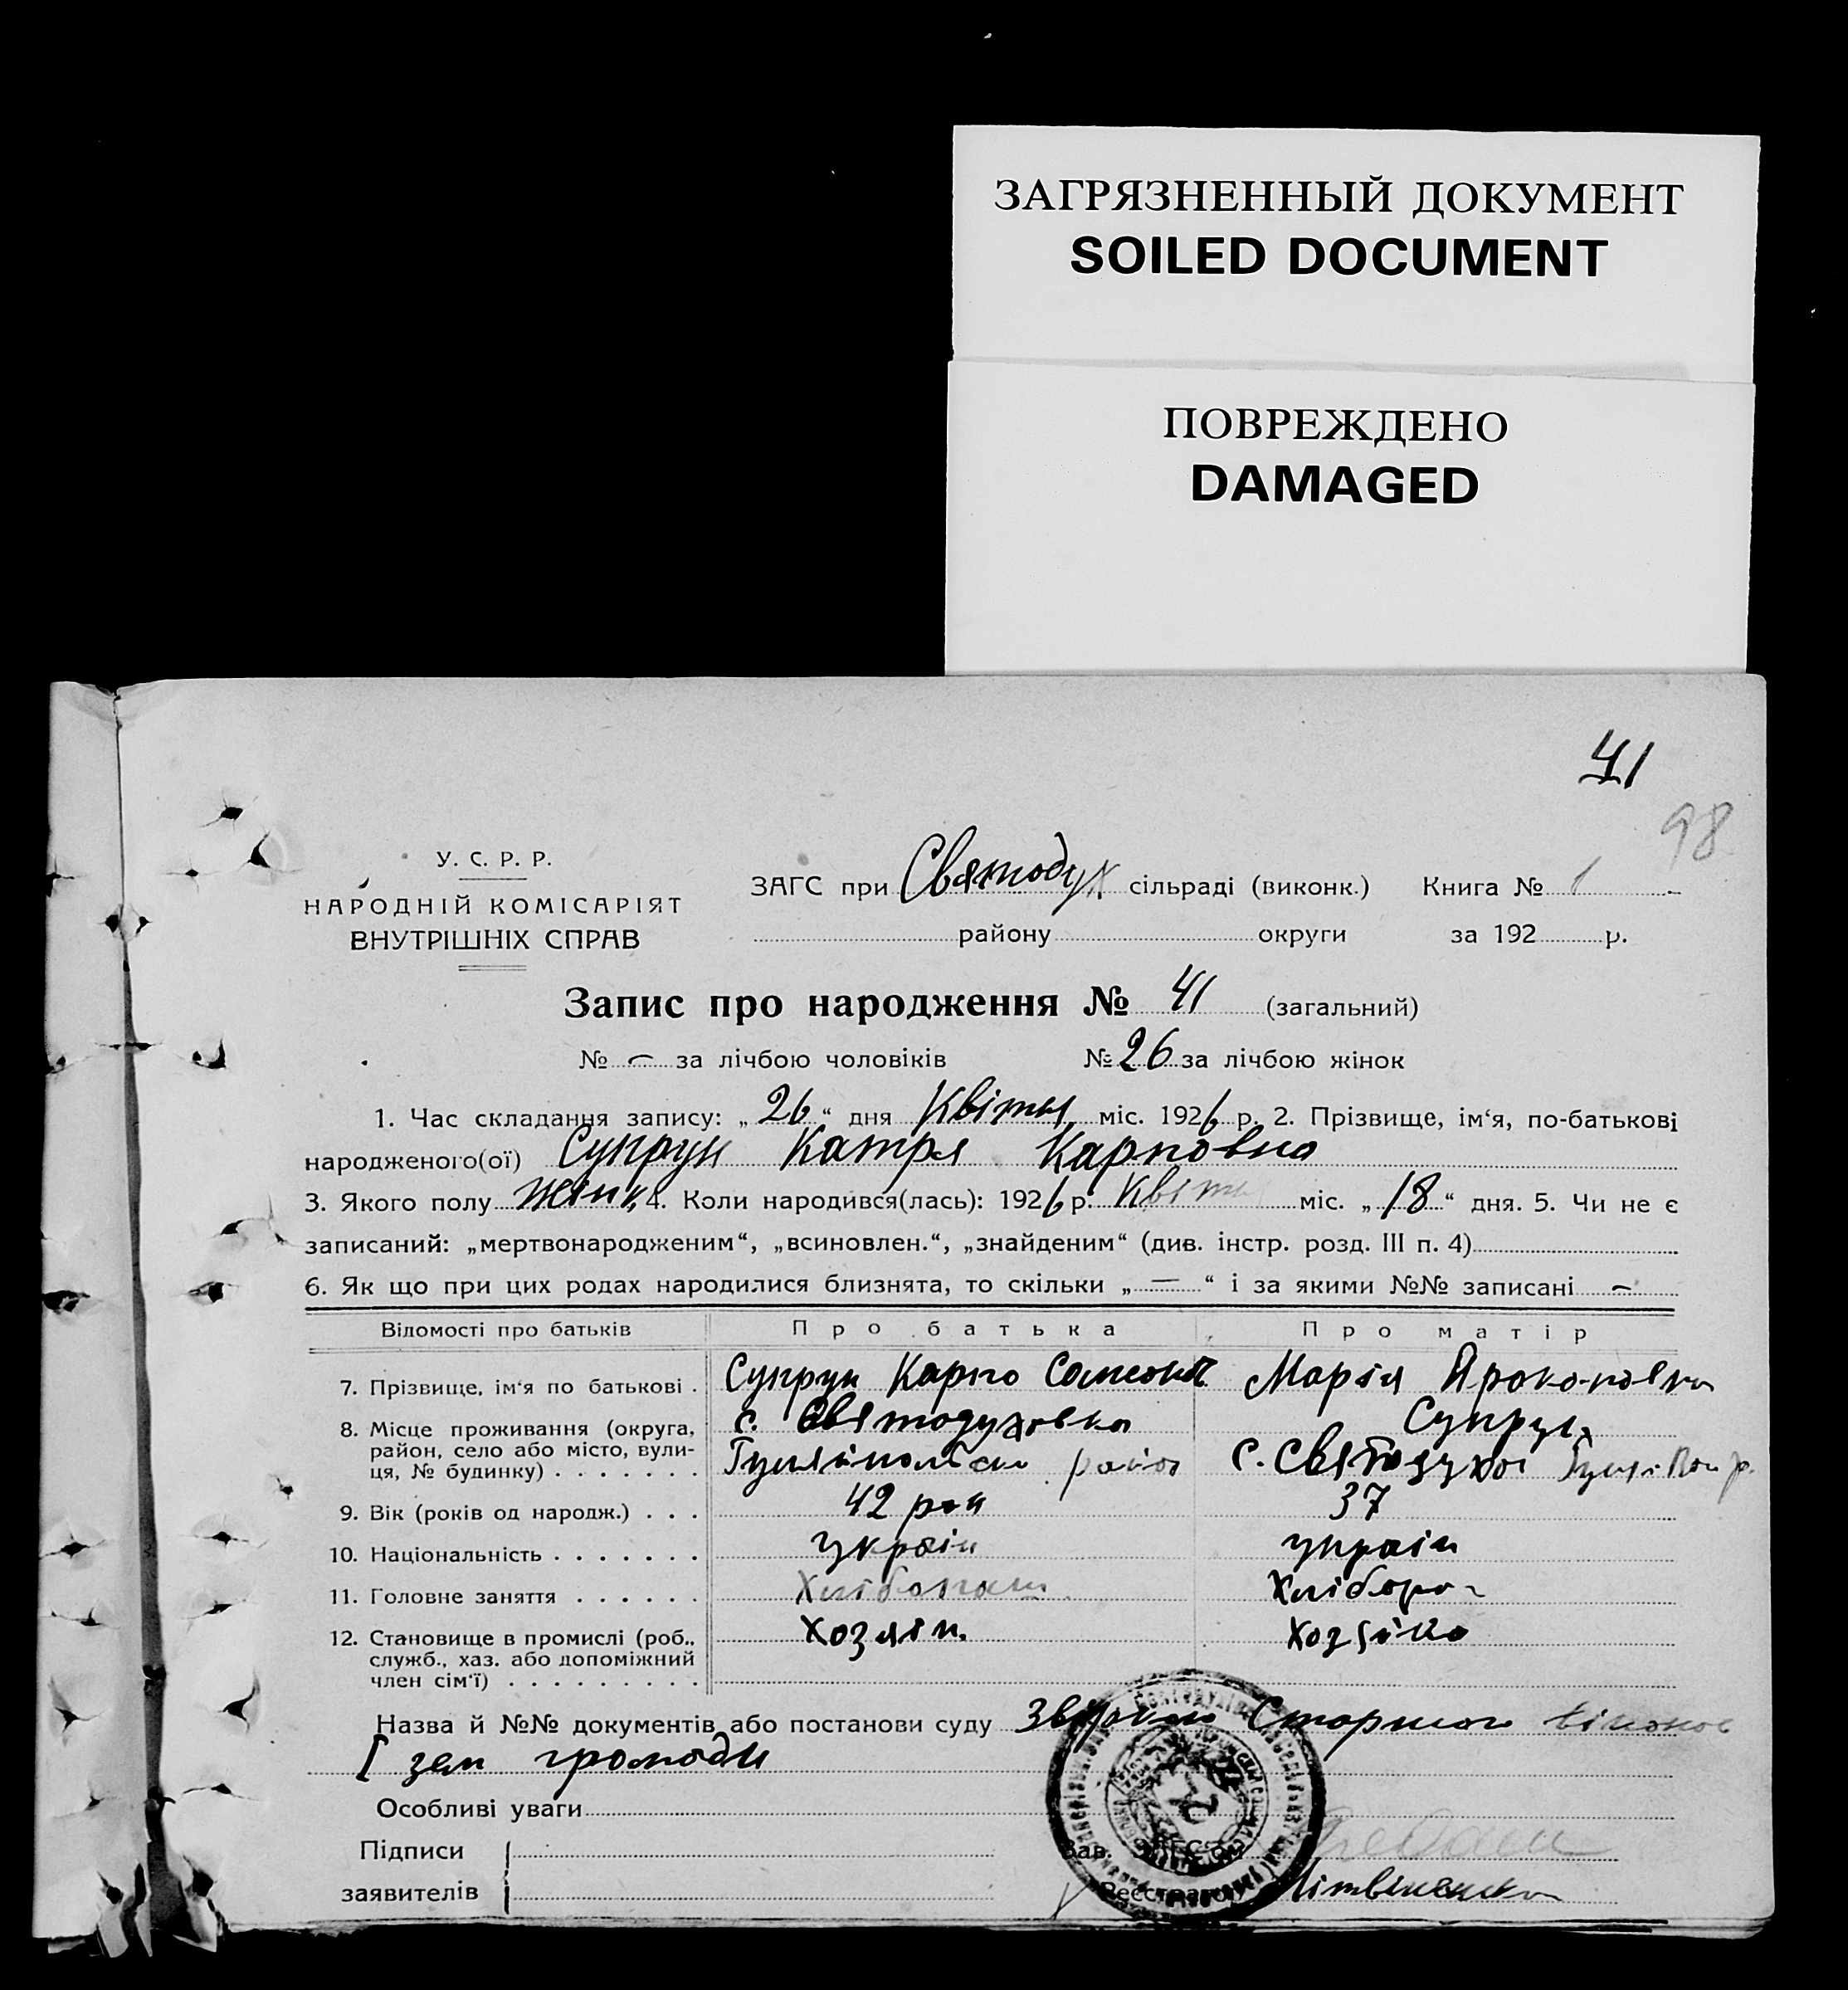 ЗАГРЯЗНЕННЫЙ ДОКУМЕНТ
SOILED DOCUMENT
ПОВРЕЖДЕНО
DAMAGED
41
98
У. С. Р. Р.
НАРОДНІЙ КОМІСАРІЯТ
ВНУТРІШНІХ СПРАВ
ЗАГС при Святодух сільраді (виконк.) Книга № 1
району округи за 192 р.
Запис про народження № 41 (загальний)
№ — за лічбою чоловіків № 26 за лічбою жінок
1. Час складання запису: „26“ дня Квітня міс. 1926 р. 2. Прізвище, ім‘я, по-батькові
народженого(ої) Супрун Катря Карповна
3. Якого полу жінк. 4. Коли народився(лась): 1926 р. Квітн міс. „18“ дня. 5. Чи не є
записаний: „мертвонародженим“, „всиновлен.“, „знайденим“ (див. інстр. розд. III п. 4)
6. Як що при цих родах народилися близнята, то скільки „—“ і за якими №№ записані —
Відомості про батьків Про батька Про матір
7. Прізвище, ім‘я по батькові . Супрун Карпо Марія Прокоповна
Супрун
8. Місце проживання (округа, с. Святодуховка
район, село або місто, вули- Гуляйпольськ район с. Святодухов
ця, № будинку) . . . . . . .
9. Вік (років од народж.) . . . 42 рок 37
10. Національність . . . . . . . україн україн
11. Головне заняття . . . . . . Хлібопаш Хлібороб
12. Становище в промислі (роб., Хозяїн. Хозяйка
служб., хаз. або допоміжний
член сім‘ї) . . . . . . . . .
Назва й №№ документів або постанови суду Старшого
I зем громади
Особливі уваги
Підписи
заявителів
Зав. ЗАГС‘ом
Реєстратор Літвіненко